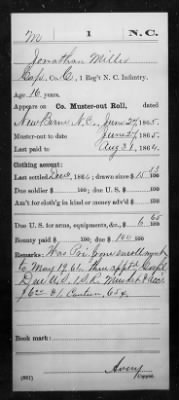 M | 1 | N.C.
Jonathan Millis
Corp., Co. C, 1 Reg't N. C. Infantry.
Age 16 years.
Appears on Co. Muster-out Roll, dated
New Berne, N.C., June 27, 1865.
Muster-out to date June 27, 1865.
Last paid to Aug 31, 1864.
Clothing account:
Last settled , 1864; drawn since $
Due soldier $ 100; due U. S. $ 100
Am't for cloth'g in kind or money adv'd $ 100
Due U. S. for arms, equipments, &c., $ 6 65
Bounty paid $ 100; due $ 100
Remarks: Was Pri.
to May 17 64 then app'td Corpl
Due U.S. 1 S.R. Musket
$6 & 1 Canteen 65¢
Book mark:
Avery
(861) Copyist.